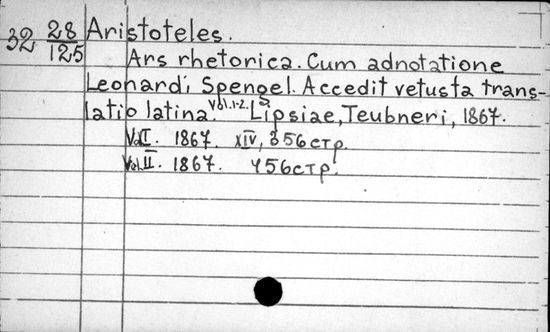 32 28/125 Aristoteles.
Ars rhetorica. Cum adnotatione
Leonardi Spengel. Accedit vetusta trans-
latio latina. Vol. 1-2. Lipsiae, Teubneri, 1867.
Vol. I. 1867. XIV, 356 стр.
Vol. II. 1867. 456 стр.